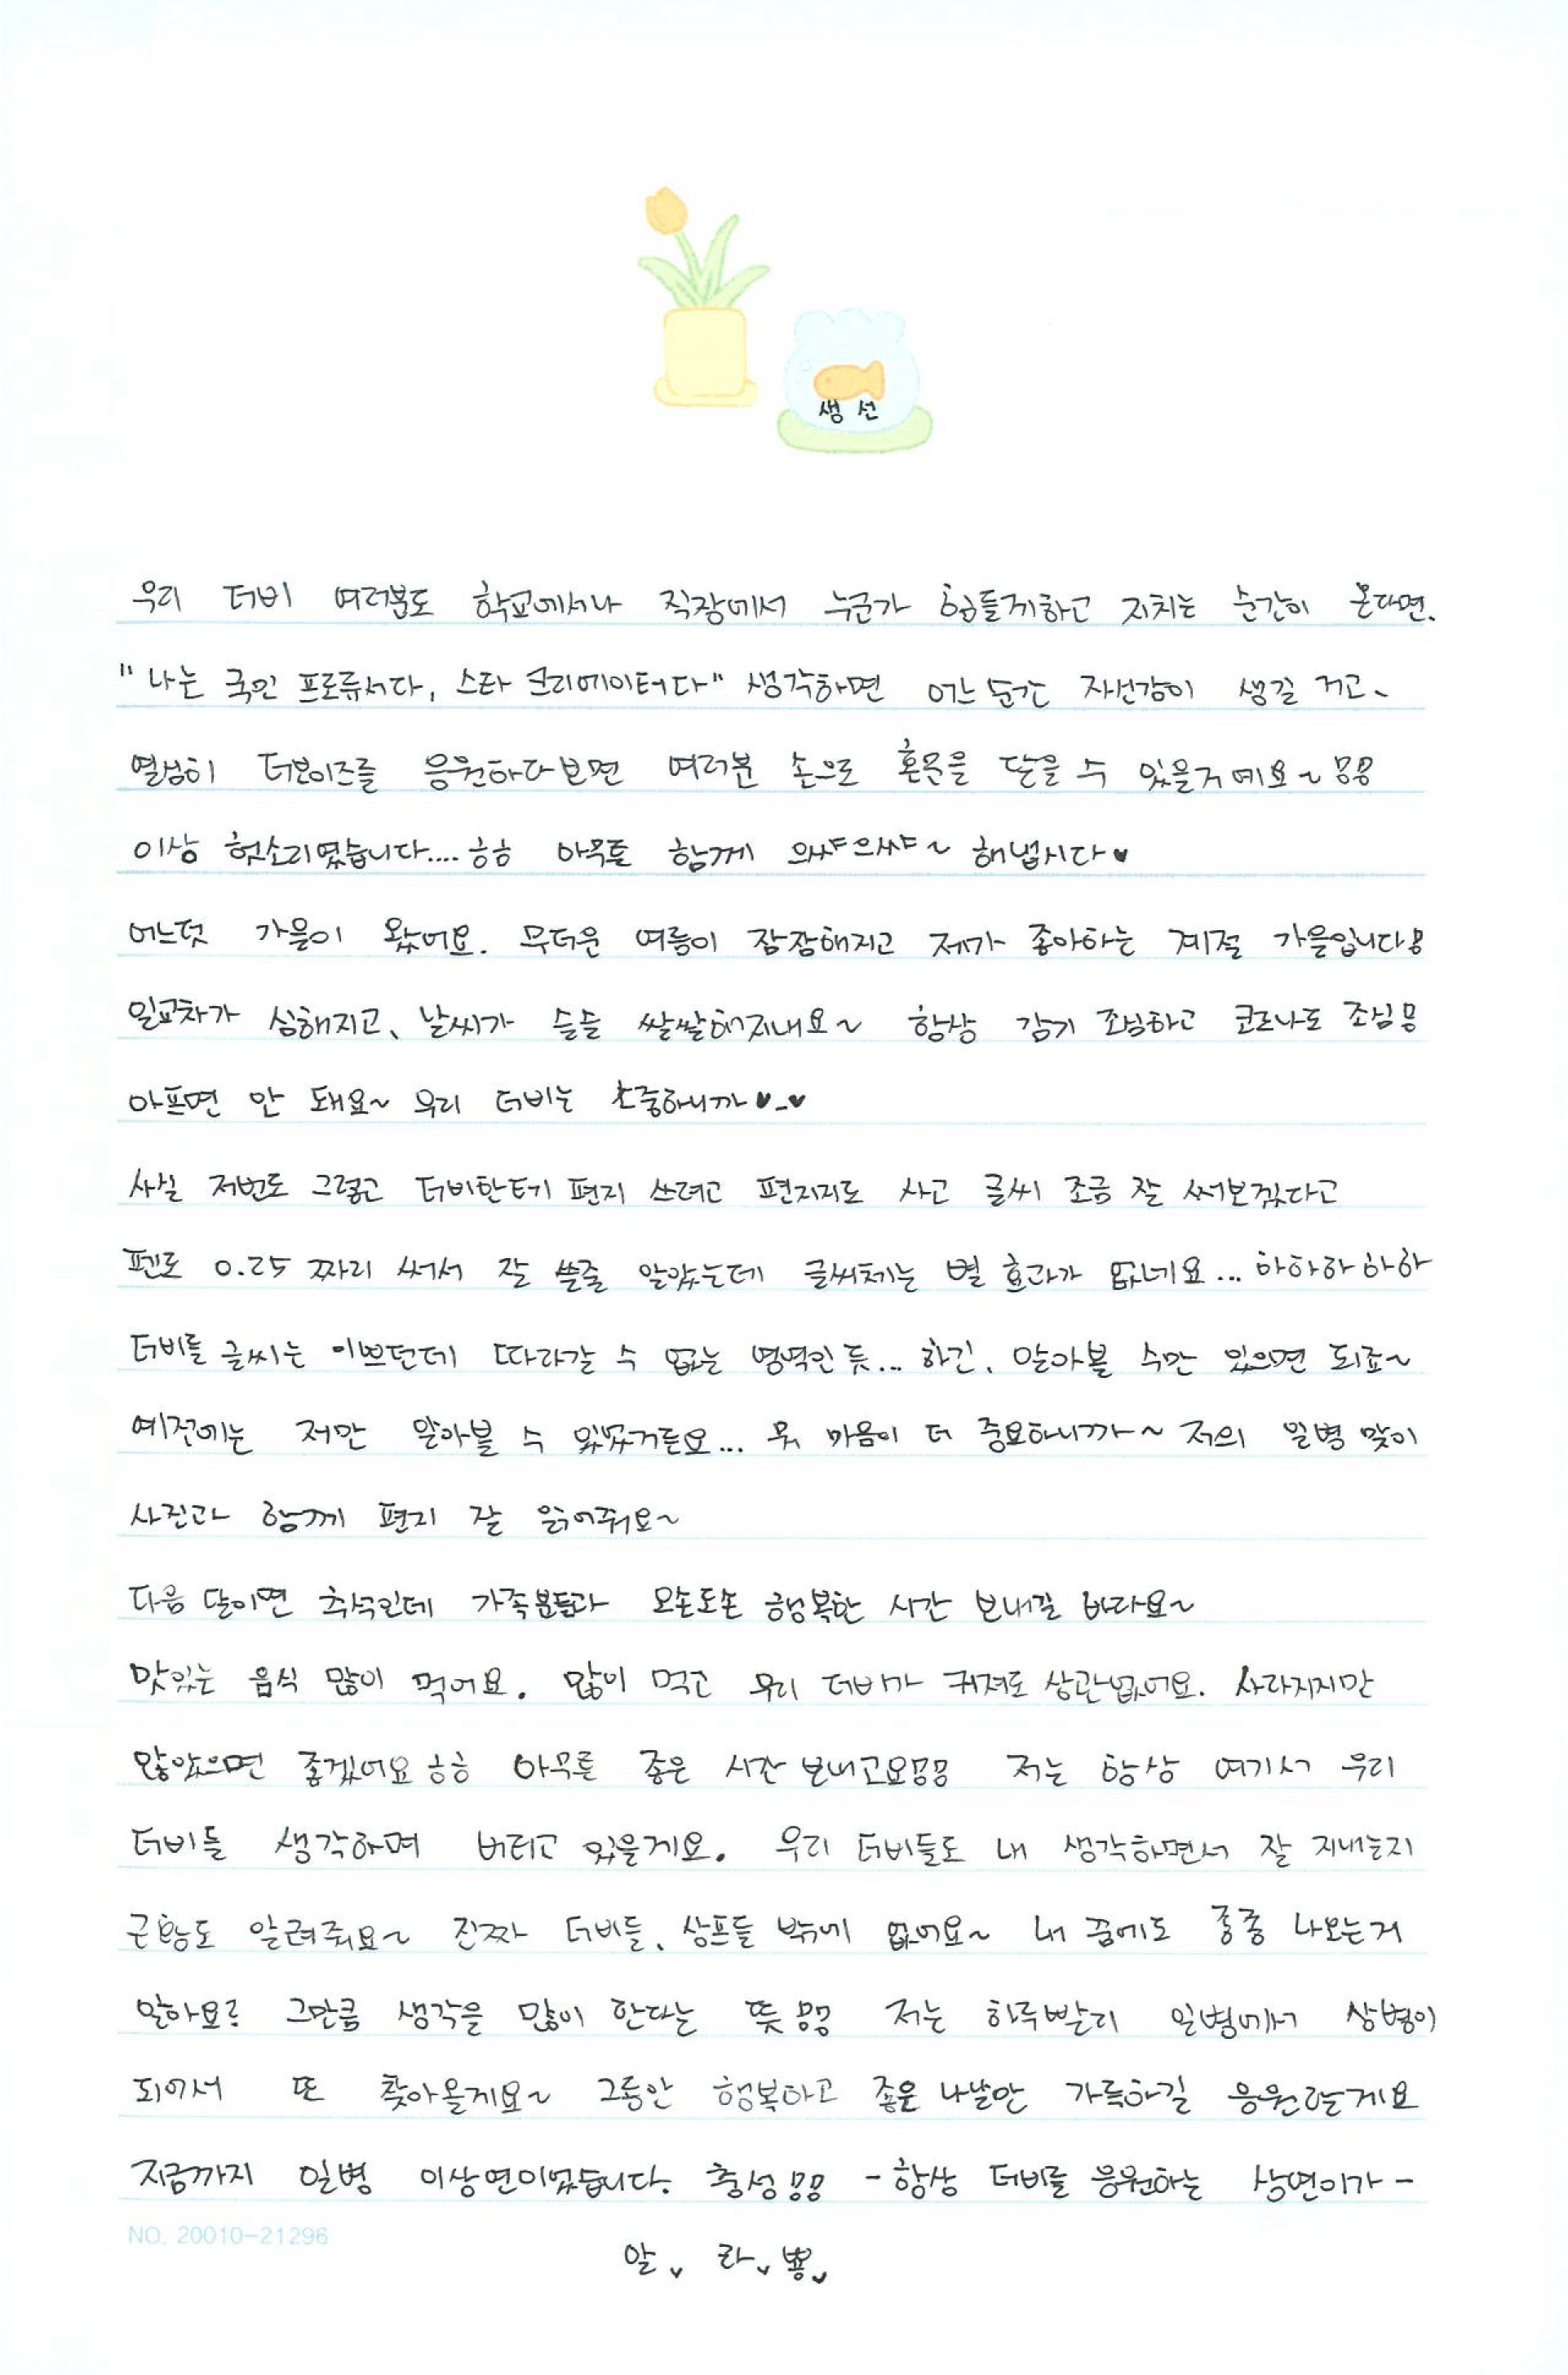 생선
우리 더비 여러분도 학교에서나 직장에서 누군가 힘들게하고 지치는 순간이 온다면.
"나는 국민 프로듀서다, 스타 크리에이터다" 생각하면 어느 순간 자신감이 생길 거고、
열심히 더보이즈를 응원하다보면 여러분 손으로 혼문을 닫을 수 있을거예요~!!
이상 헛소리였습니다.... ㅎㅎ 아무튼 함께 으쌰으쌰~ 해냅시다♥
어느덧 가을이 왔어요. 무더운 여름이 잠잠해지고 제가 좋아하는 계절 가을입니다!
일교차가 심해지고、 날씨가 슬슬 쌀쌀해지네요~ 항상 감기 조심하고 코로나도 조심!
아프면 안 돼요~ 우리 더비는 소중하니까♥_♥
사실 저번도 그렇고 더비한테 편지 쓰려고 편지지도 사고 글씨 조금 잘 써보겠다고
펜도 0.25 짜리 써서 잘 쓸줄 알았는데 글씨체는 별 효과가 없네요... 하하하하하
더비들 글씨는 이쁘던데 따라갈 수 없는 영역인 듯... 하긴、 알아볼 수만 있으면 되죠~
예전에는 저만 알아볼 수 있었거든요... 뭐 마음이 더 중요하니까~ 저의 일병 맞이
사진과 함께 편지 잘 읽어줘요~
다음 달이면 추석인데 가족분들과 오손도손 행복한 시간 보내길 바라요~
맛있는 음식 많이 먹어요. 많이 먹고 우리 더비가 커져도 상관없어요. 사라지지만
않았으면 좋겠어요 ㅎㅎ 아무튼 좋은 시간 보내고요!! 저는 항상 여기서 우리
더비들 생각하며 버티고 있을게요. 우리 더비들도 내 생각하면서 잘 지내는지
근황도 알려줘요~ 진짜 더비들、 상프들 밖에 없어요~ 내 꿈에도 종종 나오는거
알아요? 그만큼 생각을 많이 한다는 뜻!! 저는 하루빨리 일병에서 상병이
되어서 또 찾아올게요~ 그동안 행복하고 좋은 나날만 가득하길 응원할게요
지금까지 일병 이상연이었습니다. 충성!! - 항상 더비를 응원하는 상연이가 -
NO. 20010-21296
알、 라、 뿅、